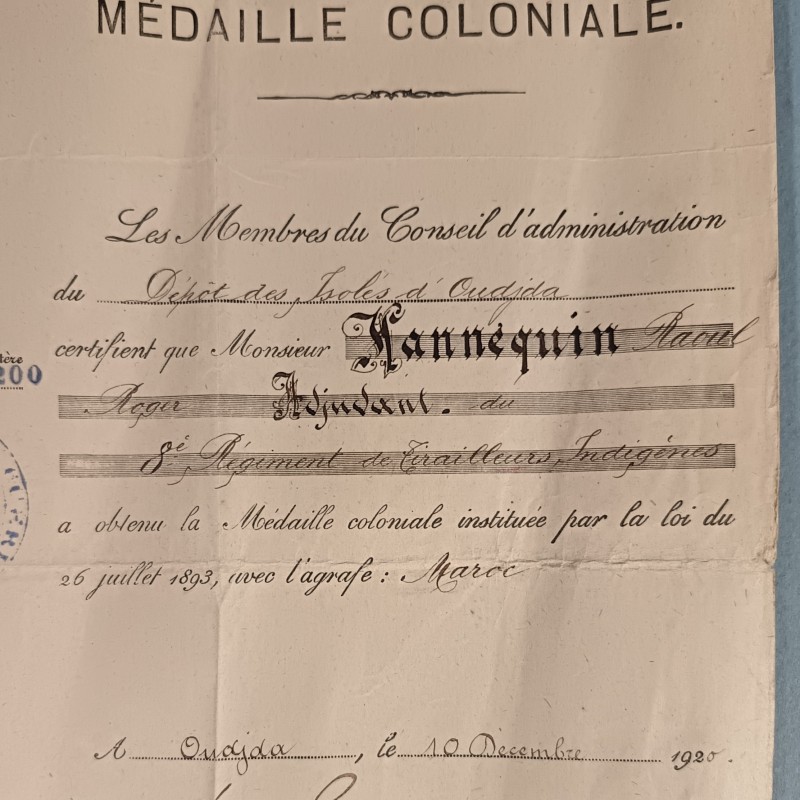 MÉDAILLE COLONIALE.
Les Membres du Conseil d'administration
du Dépôt des Isolés d'Oudjda
certifient que Monsieur Hannequin Raoul
Roger Adjudant. du
8è Régiment de Tirailleurs Indigénes
a obtenu la Médaille coloniale instituée par la loi du
26 juillet 1893, avec l'agrafe : Maroc
A Oudjda, le 10 Décembre 1920.
tère
200